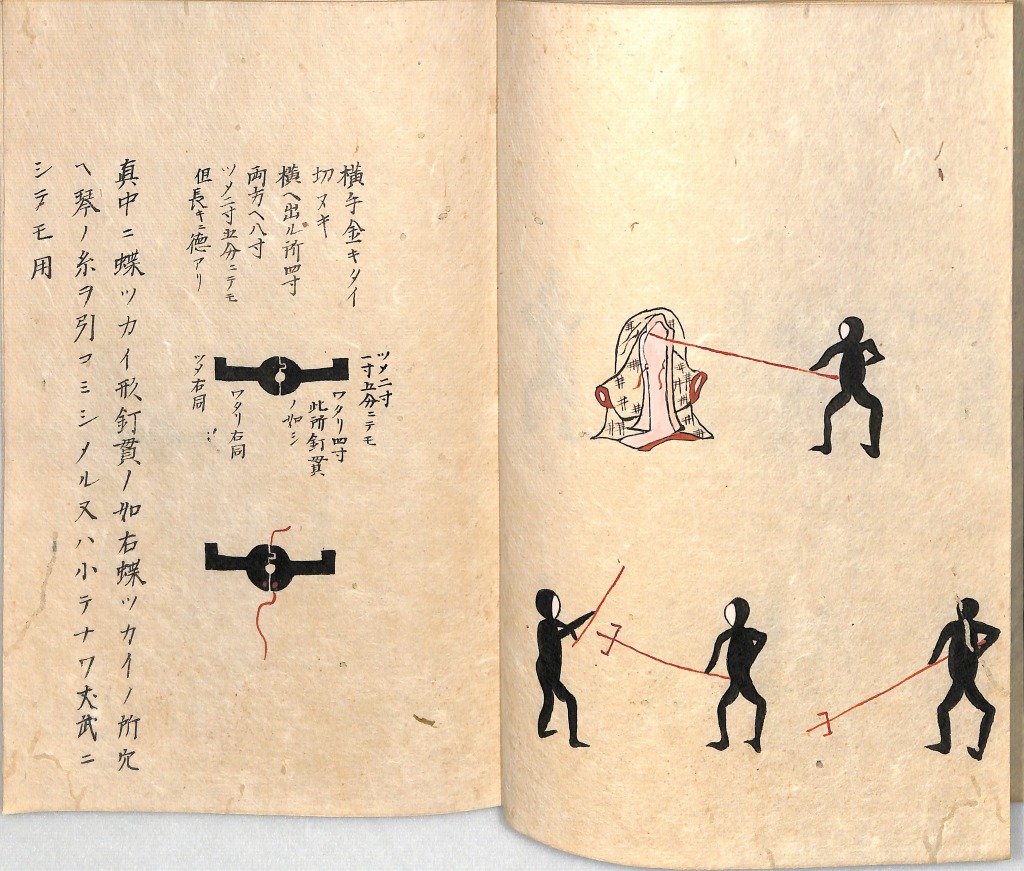 横手金キタイ
切ヌキ
横ヘ出ル所四寸
両方ヘ八寸
ツメ二寸五分ニテモ
但長キニ徳アリ
ツメ二寸
一寸五分ニテモ
ワタリ四寸
此所釘貫
ノ如シ
ワタリ右同
ツメ右同
真中ニ蝶ツカイ形釘貫ノ如右蝶ツカイノ所穴
ヘ琴ノ糸ヲ引コミシメル又ハ小テナワ大武ニ
シテモ用